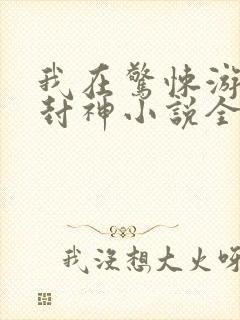 我在驚悚游
封神小說全
我沒想大火呀